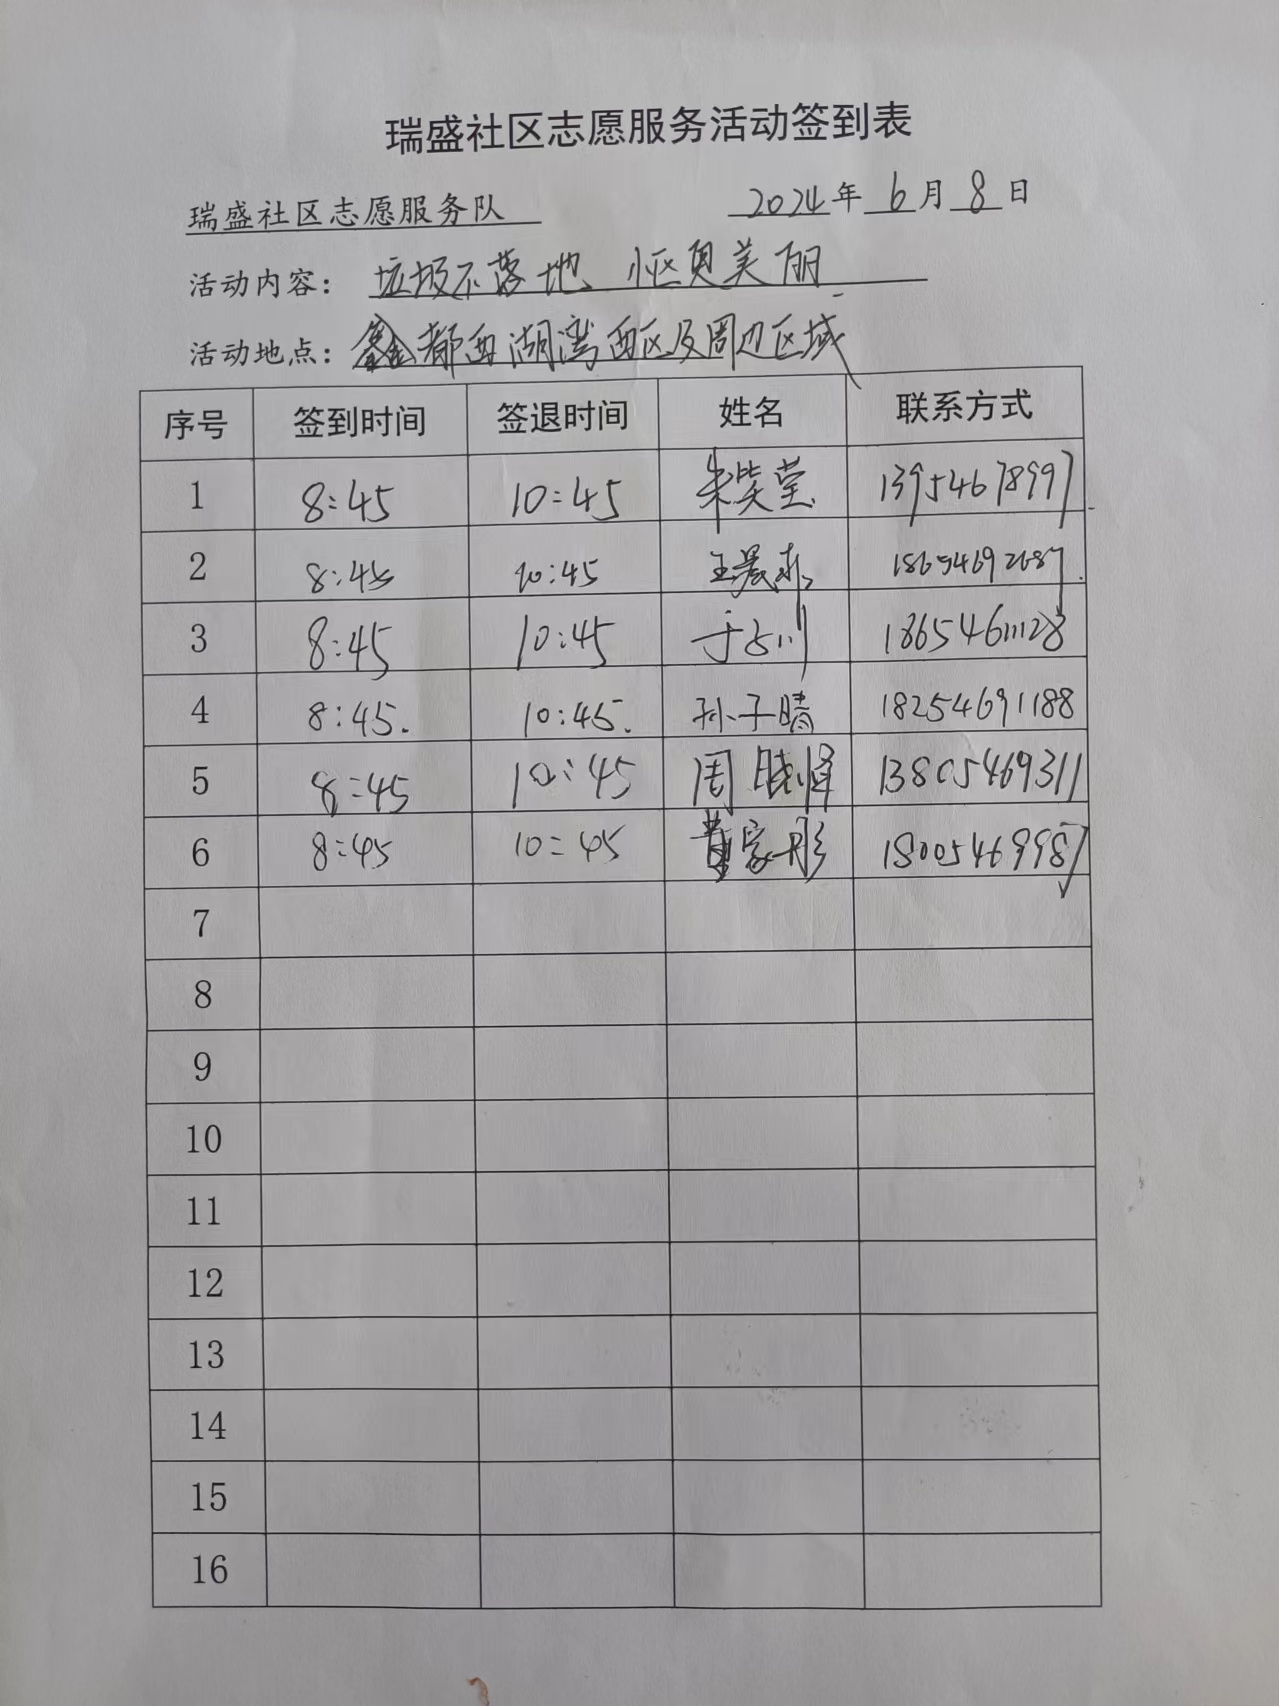 瑞盛社区志愿服务活动签到表
瑞盛社区志愿服务队 2024年 6月 8日
活动内容： 垃圾不落地、小区更美丽
活动地点：鑫都西湖湾西区及周边区域
序号 签到时间 签退时间 姓名 联系方式
1 8:45 10:45 朱笑莹 13954678997
2 8:45 10:45 王晨 18654692687
3 8:45 10:45 于 川 18654611128
4 8:45. 10:45. 孙子晴 18254691188
5 8:45 10:45 周晓 13805469311
6 8:45 10:45 黄家彤 18005469987
7
8
9
10
11
12
13
14
15
16